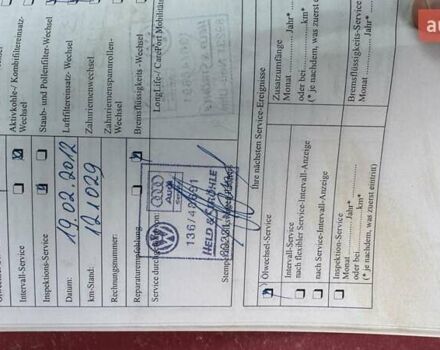 Aktivkohle-/ Kombifiltereinsatz-
Wechsel
Staub- und Pollenfilter-Wechsel
Luftfiltereinsatz- Wechsel
Zahnriemenwechsel
Zahnriemenspannrollen-
Wechsel
Bremsflüssigkeits -Wechsel
LongLife-/ CarePort Mobilität
Intervall-Service
Inspektions-Service
Datum: 19.02.2012
km-Stand: 121029
Rechnungsnummer:
Reparaturempfehlung:
Service durchgeführt von:
Audi
HELD & STRÖHLE
Ihre nächsten Service-Ereignisse
Ölwechsel-Service
Intervall-Service
nach flexibler Service-Intervall-Anzeige
nach Service-Intervall-Anzeige
Inspektion-Service
Monat ............ Jahr*
oder bei ............ km*
(* je nachdem, was zuerst eintritt)
Zusatzumfänge
Monat ............ Jahr*
oder bei ............ km*
(* je nachdem, was zuerst
Bremsflüssigkeits-Service
Monat ............ Jahr*